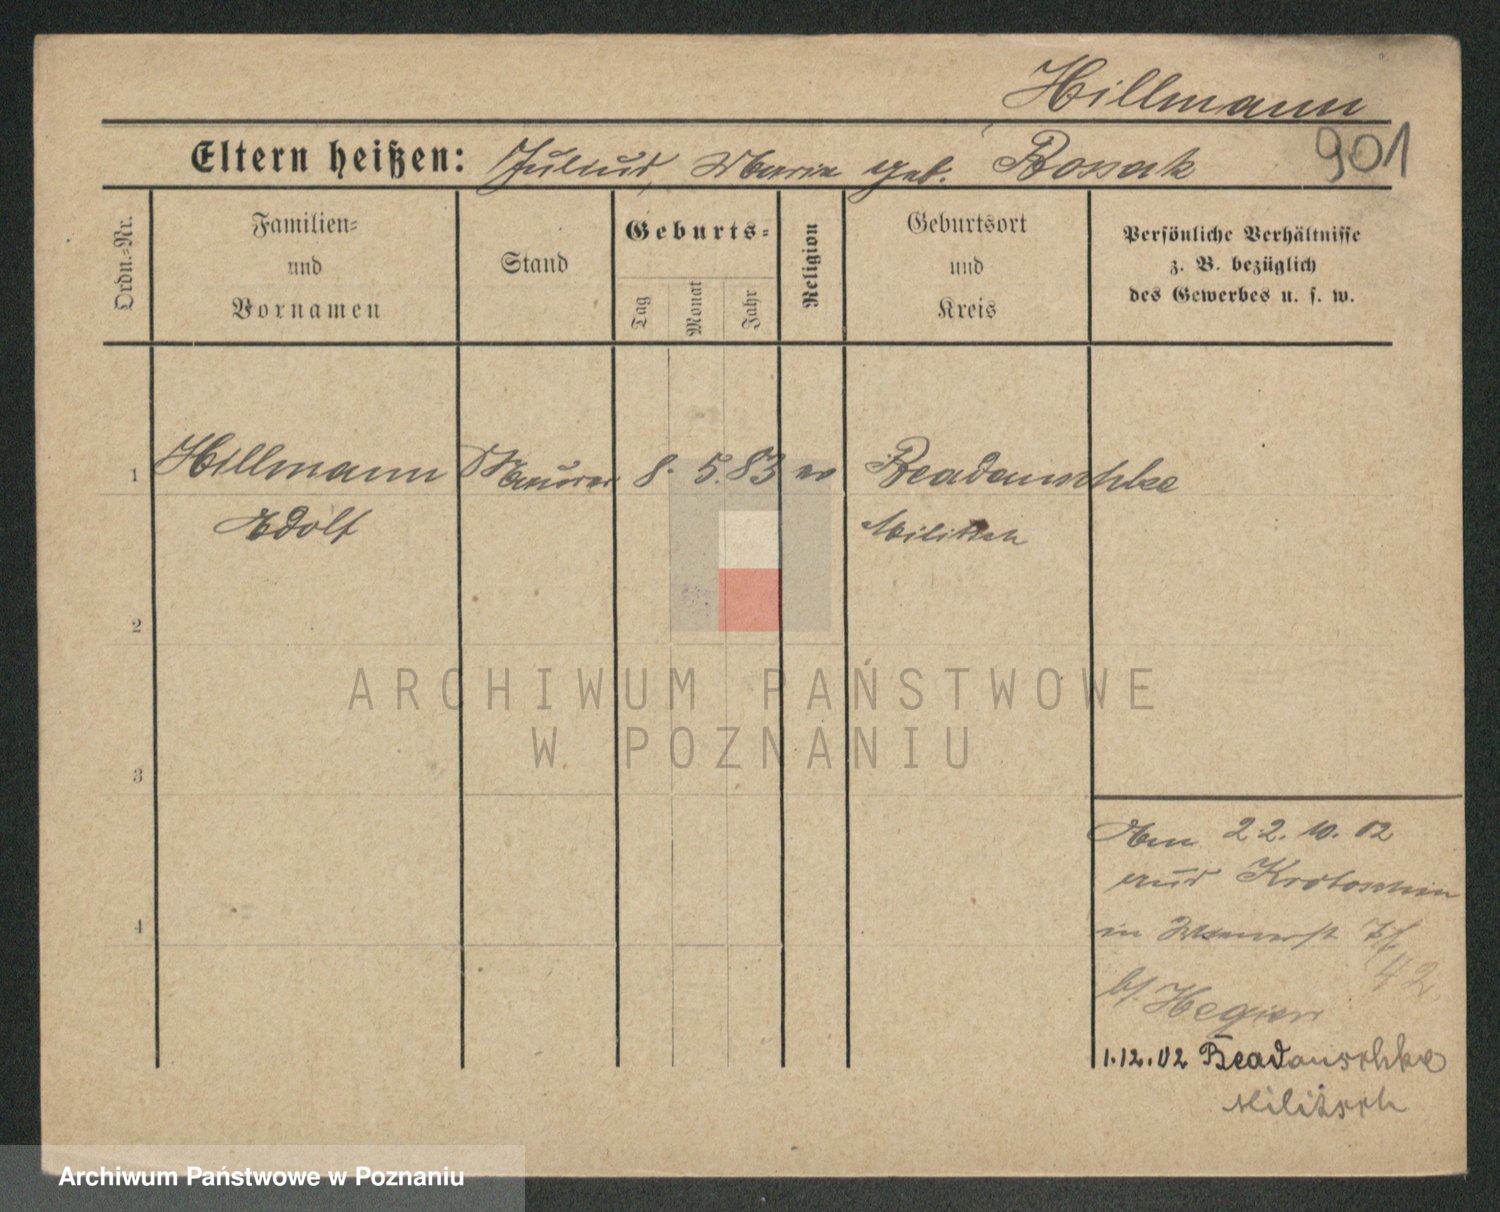 Hillmann
901
Eltern heißen: Julius, Maria geb. Rossak
Ordn.-Nr.
Familien- und Vornamen
Stand
Geburts-
Tag
Monat
Jahr
Religion
Geburtsort und Kreis
Persönliche Verhältnisse
z. B. bezüglich
des Gewerbes u. s. w.
1 Hillmann Maurer 8. 5. 83 ev Beadauschke
Adolf Militsch
2
3
4
Am 22.10.02
aus Krotoschin
in
42
b/
1.12.02 Beadauschke
Militsch
ARCHIWUM PAŃSTWOWE
W POZNANIU
Archiwum Państwowe w Poznaniu